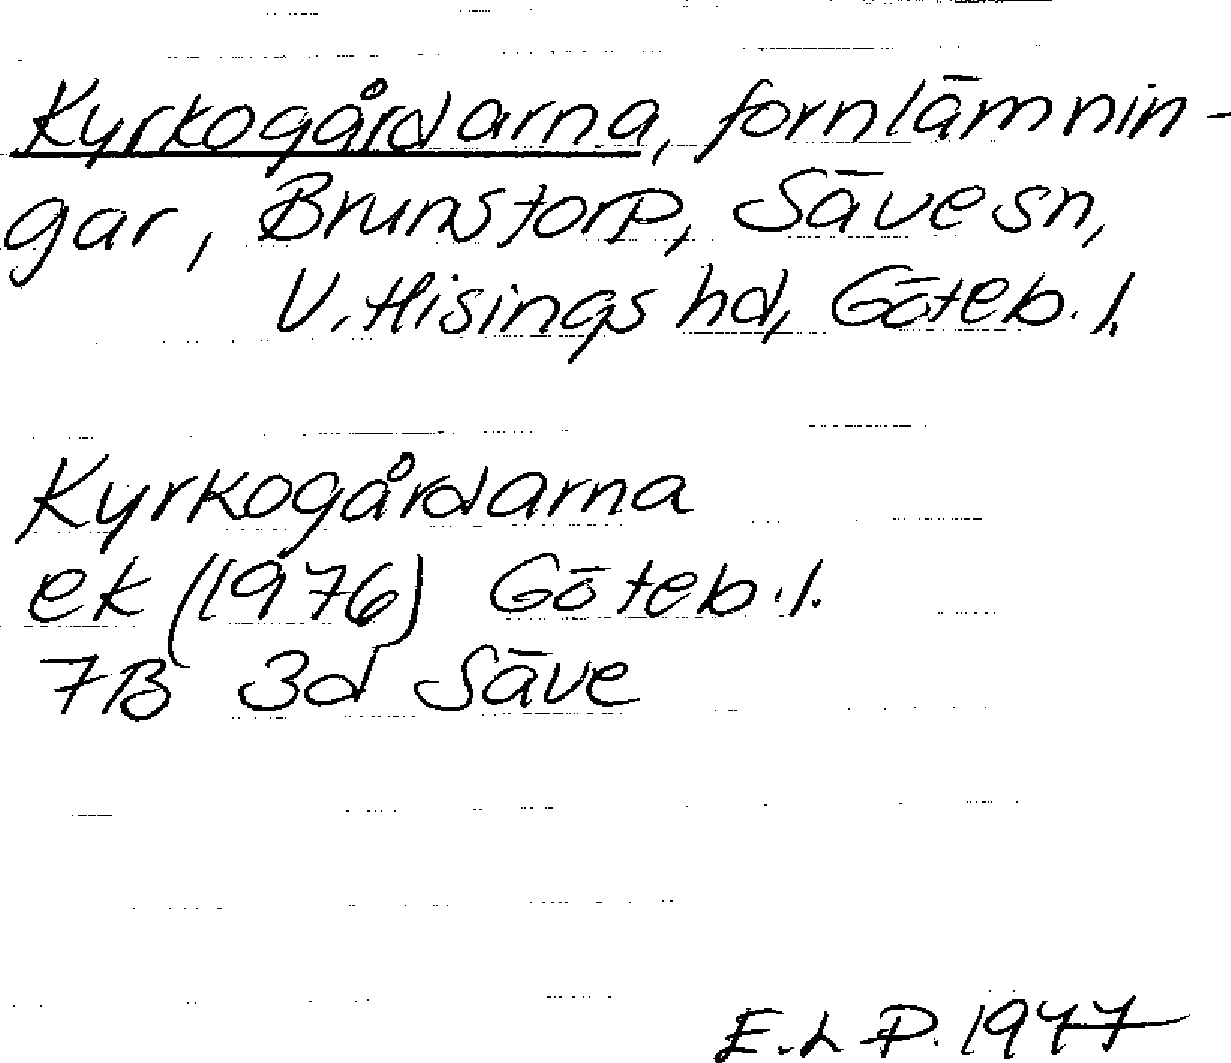 Kyrkogårdarna, fornlämnin-
gar, Brunstorp, Säve sn,
V. Hisings hd, Göteb. l.
Kyrkogårdarna
ek (1976) Göteb. l.
7B 3d Säve
E. L P. 1977